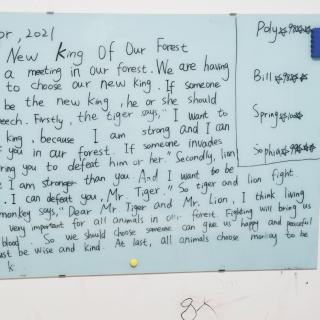 pr, 2021
New King Of Our Forest
a meeting in our forest. We are having
to choose our new king. If someone
be the new king, he or she should
eech. Firstly, the tiger says, "I want to
king, because I am strong and I can
f you in our forest. If someone invades
ring you to defeat him or her." Secondly, lion
I am stronger than you. And I want to be
. I can defeat you, Mr. Tiger." So tiger and lion fight.
monkey says, "Dear Mr. Tiger and Mr. Lion, I think living
very important for all animals in our forest. Fighting will bring us
blood. So we should choose someone can give us happy and peaceful
ust be wise and kind. At last, all animals choose monkey to be
k
Poly
Bill
Spring
Sophia